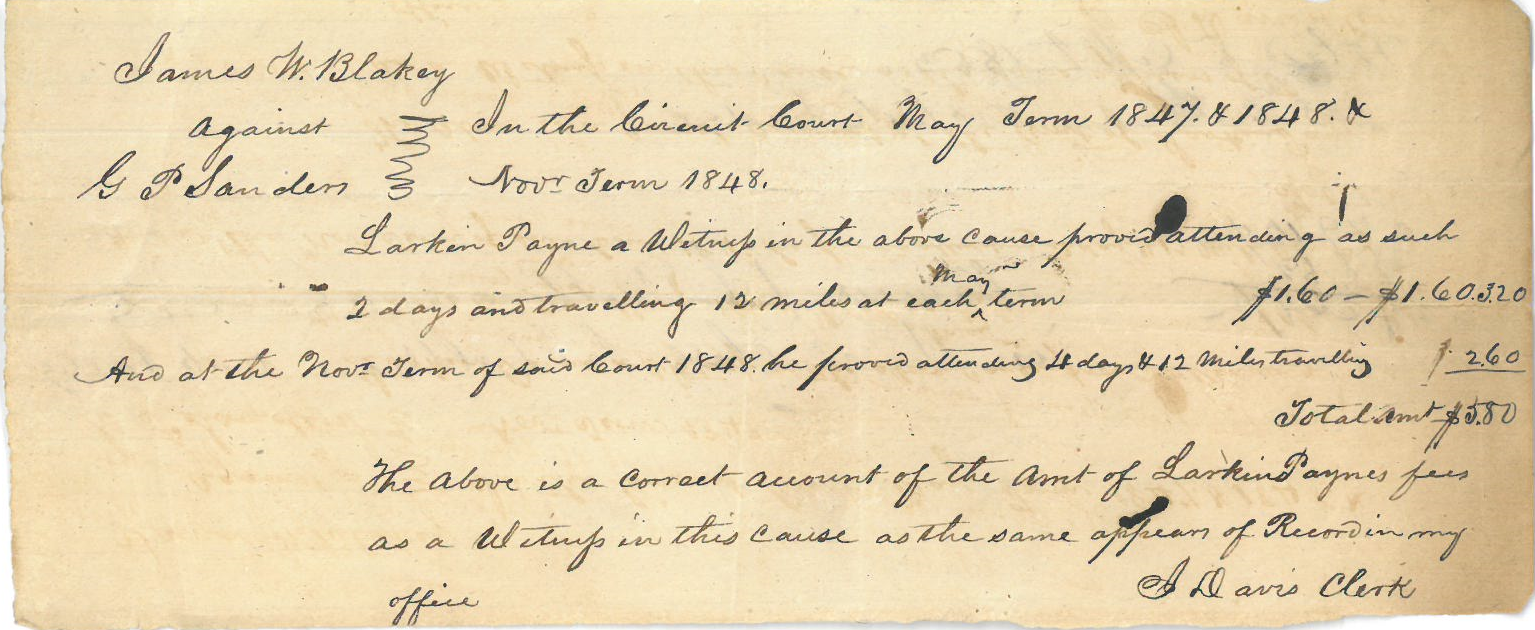 James W. Blakey
against In the Circuit Court May Term 1847. & 1848. &
G P Sanders Novr Term 1848.
Larkin Payne a Witness in the above cause proved attending as such
2 days and travelling 12 miles at each May term $1.60 – $1.60. 3.20
And at the Novr Term of said Court 1848. he proved attending 4 days & 12 miles travelling 2.60
Total amt $5.80
The above is a correct account of the amt of Larkin Paynes fees
as a Witness in this cause as the same appears of Record in my
office J Davis Clerk